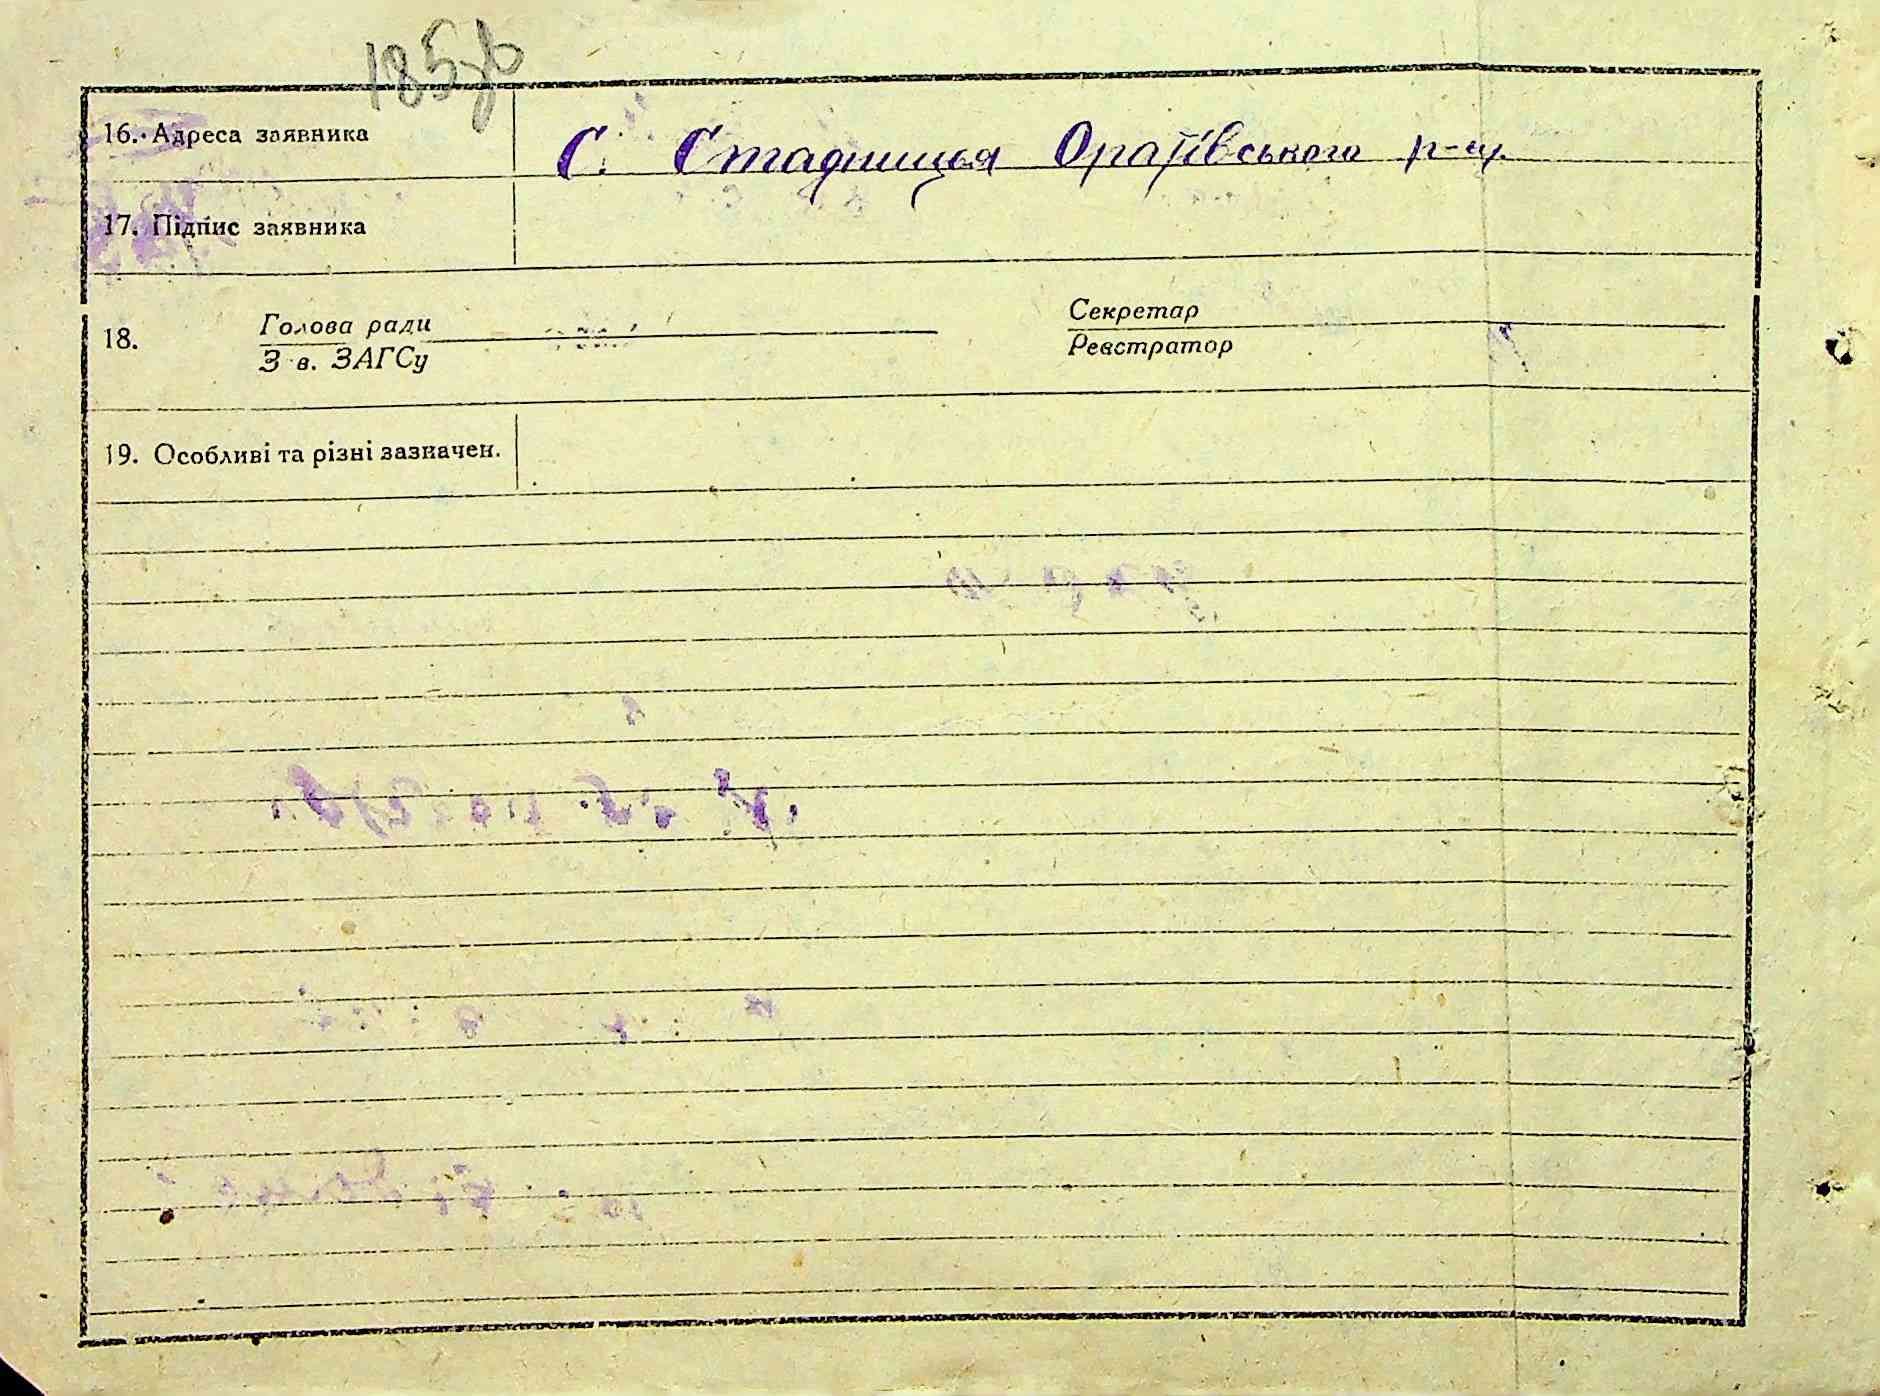 185зв
16. Адреса заявника С. Стадниця Оратівського р-ну.
17. Підпис заявника
18. Голова ради Секретар
З в. ЗАГСу Реєстратор
19. Особливі та різні зазначен.